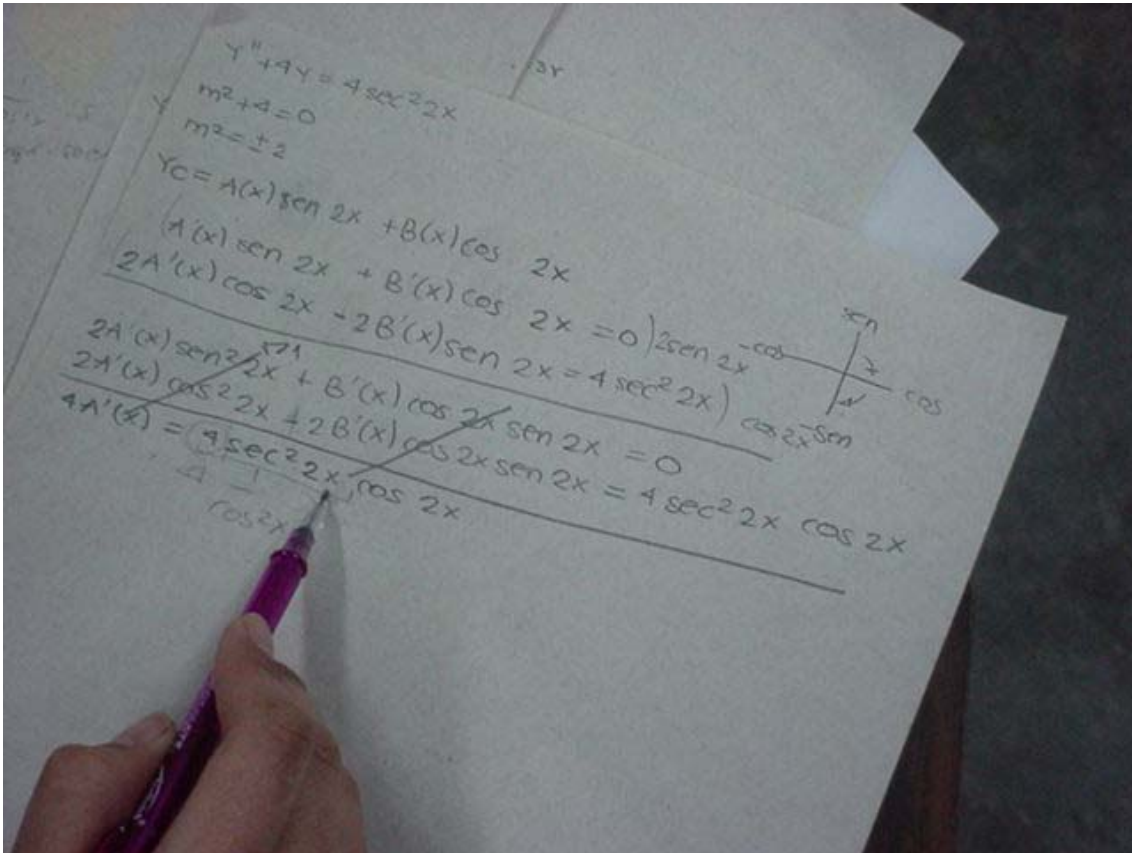 Y"+4Y = 4 sec² 2x
m²+4=0
m²=±2
Yc = A(x) sen 2x + B(x) cos 2x
(A'(x) sen 2x + B'(x) cos 2x = 0) 2sen 2x
2A'(x) cos 2x - 2B'(x) sen 2x = 4 sec² 2x) cos 2x
sen
-cos
cos
-sen
2A'(x) sen² 2x + B'(x) cos 2x sen 2x = 0
2A'(x) cos² 2x + 2B'(x) cos 2x sen 2x = 4 sec² 2x cos 2x
4A'(x) = 4 sec² 2x cos 2x
4 1
cos²x